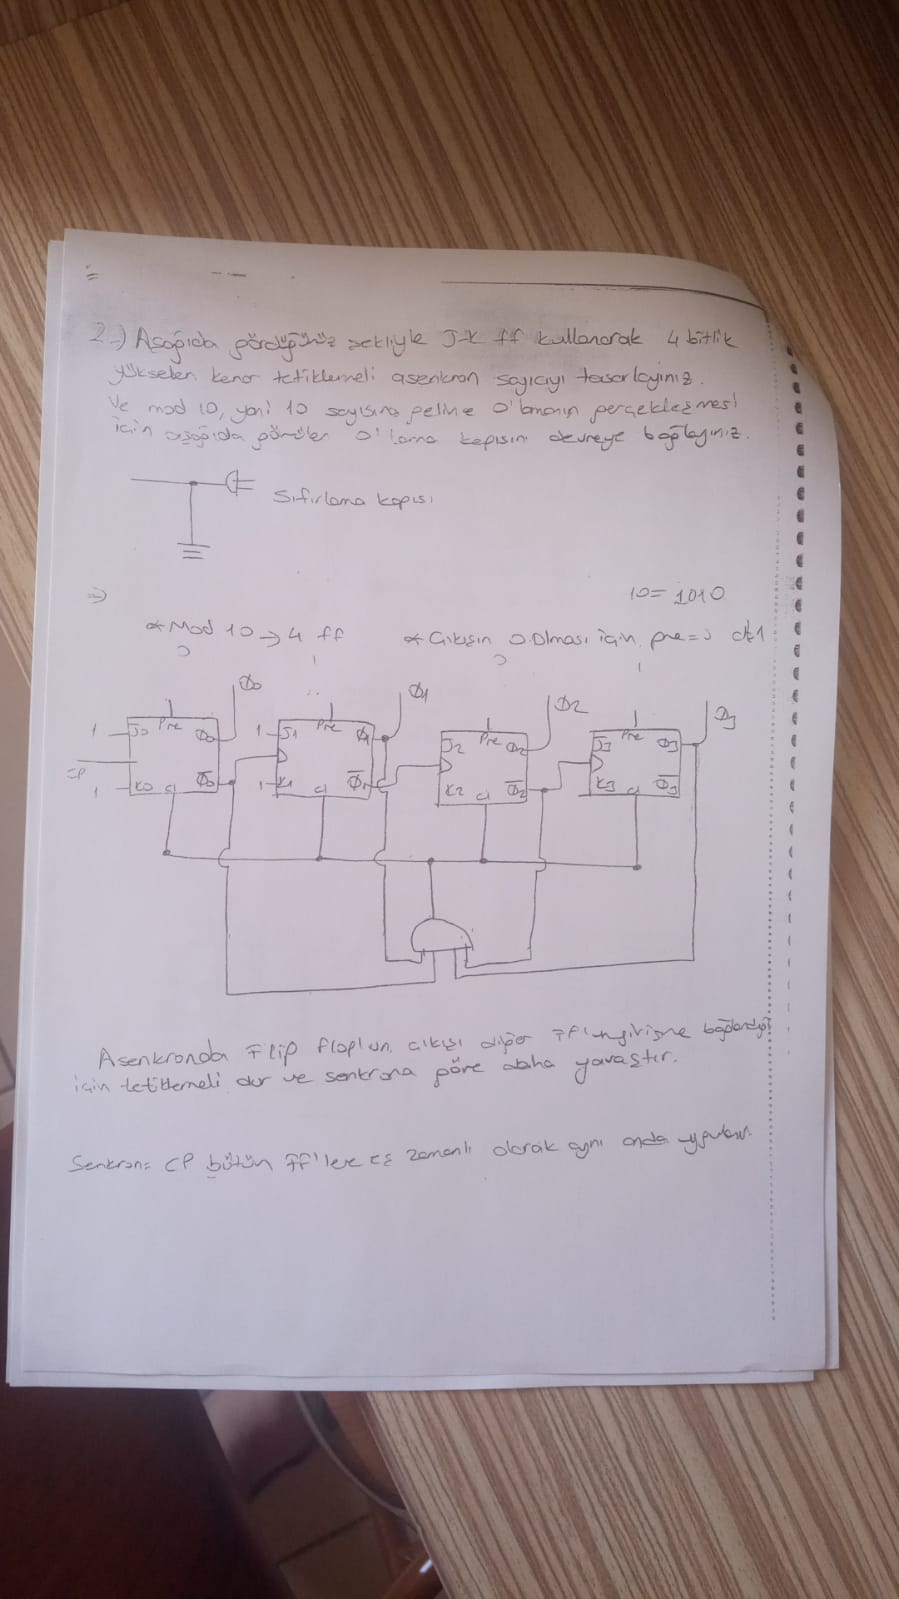 2-) Aşağıda gördüğünüz şekliyle J-K ff kullanarak 4 bitlik
yükselen kenar tetiklemeli asenkron sayıcıyı tasarlayınız.
Ve mod 10, yani 10 sayısına gelince 0'lamanın gerçekleşmesi
için aşağıda görülen 0'lama kapısını devreye bağlayınız.
Sıfırlama kapısı
⇒
10= 1010
* Mod 10 → 4 ff
* Çıkışın 0 olması için pre=0
Q0 Q1 Q2 Q3
1 J0 Pre Q0 1 J1 Pre Q1 J2 Pre Q2 J3 Pre Q3
CP
1 K0 Cl Q̅0 1 K1 Cl Q̅1 K2 Cl Q̅2 K3 Cl Q̅3
Asenkronda Flip flop'un çıkışı diğer FF'un girişine bağlandığı
için tetiklemeli dir ve senkrona göre daha yavaştır.
Senkron= CP bütün FF'lere eş zamanlı olarak aynı anda uygulanır.